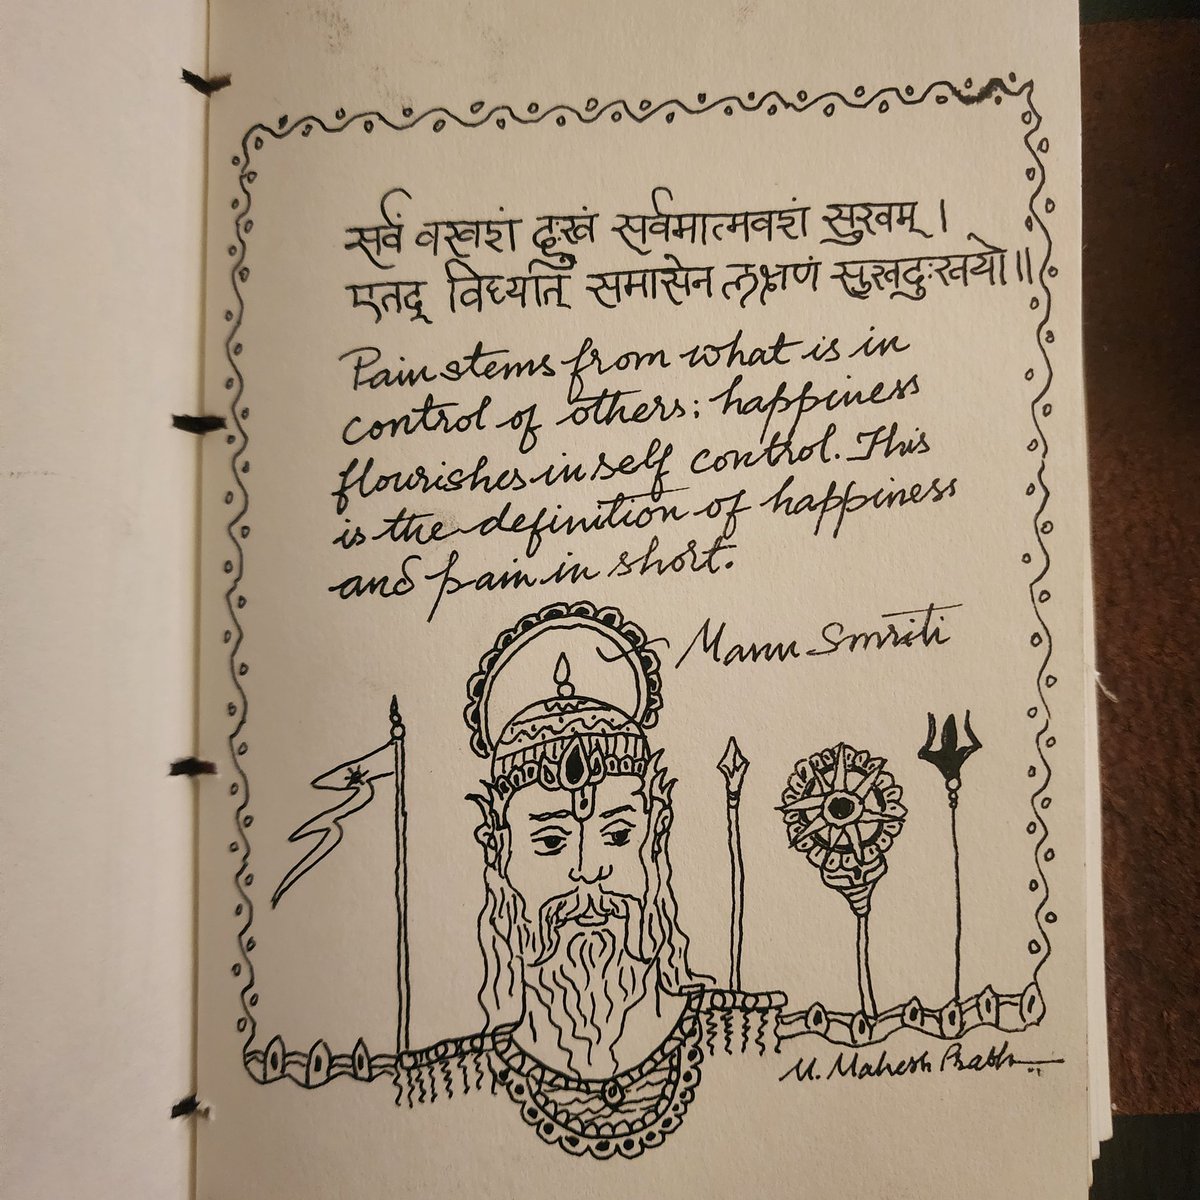 सर्वं वरवशं दुःखं सर्वमात्मवशं सुखम् ।
एतद् विध्यात् समासेन लक्षणं सुखदुःखयो ॥
Pain stems from what is in
control of others; happiness
flourishes in self control. This
is the definition of happiness
and pain in short.
Manu Smriti
M. Mahesh Prabhu